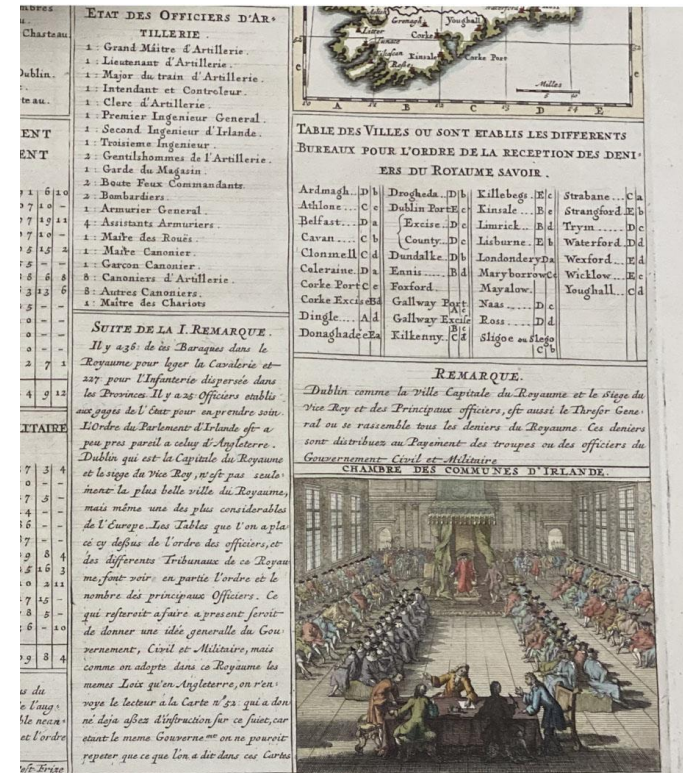 mbres
Chasteau.
Dublin.
teau.
ENT
NT
1 6 10
7 10 -
7 19 11
7 10 -
5 15 2
8 6 8
3 13 6
5 - -
0 - -
0 - -
0 - -
2 7 1
4 9 12
LITAIRE
7 3 4
0 - -
7 5 -
4 - -
6 - -
7 - -
9 8 4
5 16 3
0 2 11
7 15 -
8 5 -
6 - 10
9 8 4
s du
e l'aug-
ble nean-
et l'ordre
ETAT DES OFFICIERS D'AR-
TILLERIE.
1 : Grand Maitre d'Artillerie.
1 : Lieutenant d'Artillerie.
1 : Major du train d'Artillerie.
1 : Intendant et Controleur.
1 : Clerc d'Artillerie.
1 : Premier Ingenieur General.
1 : Second Ingenieur d'Irlande.
1 : Troisieme Ingenieur.
2 : Gentilshommes de l'Artillerie.
1 : Garde du Magasin.
2 : Boute Feux Commandants.
2 : Bombardiers.
1 : Armurier General.
4 : Assistants Armuriers.
1 : Maitre des Rouës.
1 : Maitre Canonier.
1 : Garçon Canonier.
8 : Canoniers d'Artillerie.
8 : Autres Canoniers.
1 : Maître des Chariots
SUITE DE LA I. REMARQUE.
Il y a 36: de ces Baraques dans le
Royaume pour loger la Cavalerie et
227 pour l'Infanterie dispersée dans
les Provinces. Il y a 25 Officiers etablis
aux gages de l'Etat pour en prendre soin.
L'Ordre du Parlement d'Irlande est a
peu pres pareil a celuy d'Angleterre.
Dublin qui est la Capitale du Royaume
et le siege du Vice Roy, n'est pas seule-
ment la plus belle ville du Royaume,
mais même une des plus considerables
de l'Europe. Les Tables que l'on a pla
cé cy dessus de l'ordre des officiers, et
des differents Tribunaux de ce Royau
me, font voir en partie l'ordre et le
nombre des principaux Officiers. Ce
qui resteroit a faire a present seroit
de donner une idée generalle du Gou-
vernement, Civil et Militaire, mais
comme on adopte dans ce Royaume les
memes Loix qu'en Angleterre, on r'en-
voye le lecteur à la Carte n.º 52: qui a don
né deja assez d'instruction sur ce suiet, car
etant le meme Gouverne.mt on ne pouroit
repeter que ce que l'on a dit dans ces Cartes
Youghall
Corke
Kinsale
Corke Port
Rosse
Milles
A B C D E
TABLE DES VILLES OU SONT ETABLIS LES DIFFERENTS
BUREAUX POUR L'ORDRE DE LA RECEPTION DES DENI-
ERS DU ROYAUME SAVOIR.
Ardmagh.. D b
Athlone ... C c
Belfast.... D a
Cavan .... C b
Clonmell C d
Coleraine. D a
Corke Port C e
Corke Excise Bd
Dingle .... A d
Donaghadée Ea
Drogheda.. D b
Dublin Port E c
Excise.. D c
County.. D c
Dundalke.. D b
Ennis ..... B d
Foxford.
Gallway Port. A c
Gallway Excise B c
Kilkenny.. C d
Killebegs. E c
Kinsale ... B e
Limrick .. B d
Lisburne. E b
Londondery Da
Maryborrow Cc
Mayalow.
Naas ..... D c
Ross ..... D d
Sligoe ou Slego C b
Strabane ... C a
Strangford. E b
Trym ..... D c
Waterford. D d
Wexford ... E d
Wicklow ... E c
Youghall.... C d
REMARQUE.
Dublin comme la Ville Capitale du Royaume et le Siege du
Vice Roy et des Principaux officiers, est aussi le Thresor Gene-
ral ou se rassemble tous les deniers du Royaume. Ces deniers
sont distribuez au Payement des troupes ou des officiers du
Gouvernement Civil et Militaire
CHAMBRE DES COMMUNES D'IRLANDE.